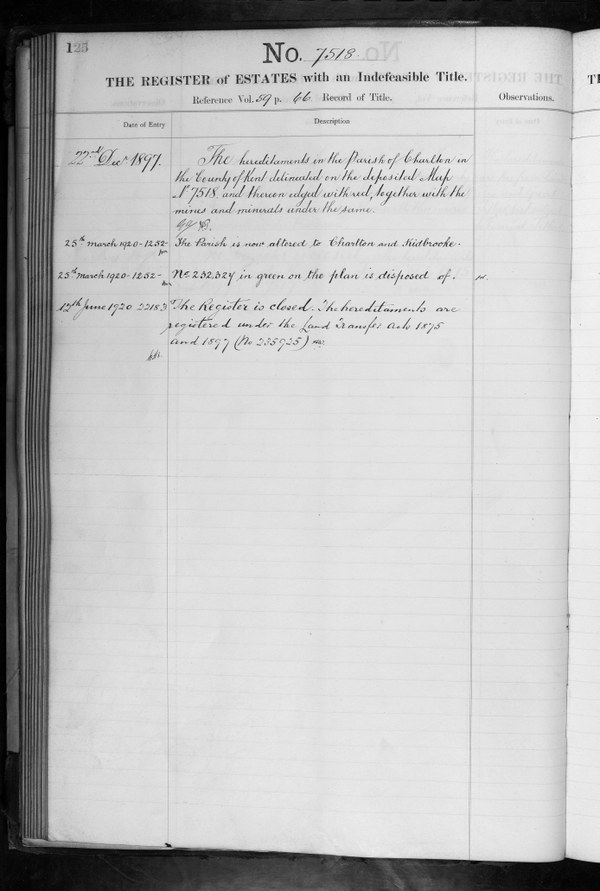 125
No. 7518.
THE REGISTER of ESTATES with an Indefeasible Title.
Reference Vol. 59 p. 66 Record of Title.
Observations.
Date of Entry
Description
22nd Decr 1897. The hereditaments in the Parish of Charlton in
the County of Kent delineated on the deposited Map
No 7518, and thereon edged with red, together with the
mines and minerals under the same.
25th March 1920 - 1252 - The Parish is now altered to Charlton and Kidbrooke.
25th March 1920 - 1252 - No 232,324 in green on the plan is disposed of.
12th June 1920 22183 The Register is closed. The hereditaments are
registered under the Land Transfer Acts 1875
and 1897 (No 235925)